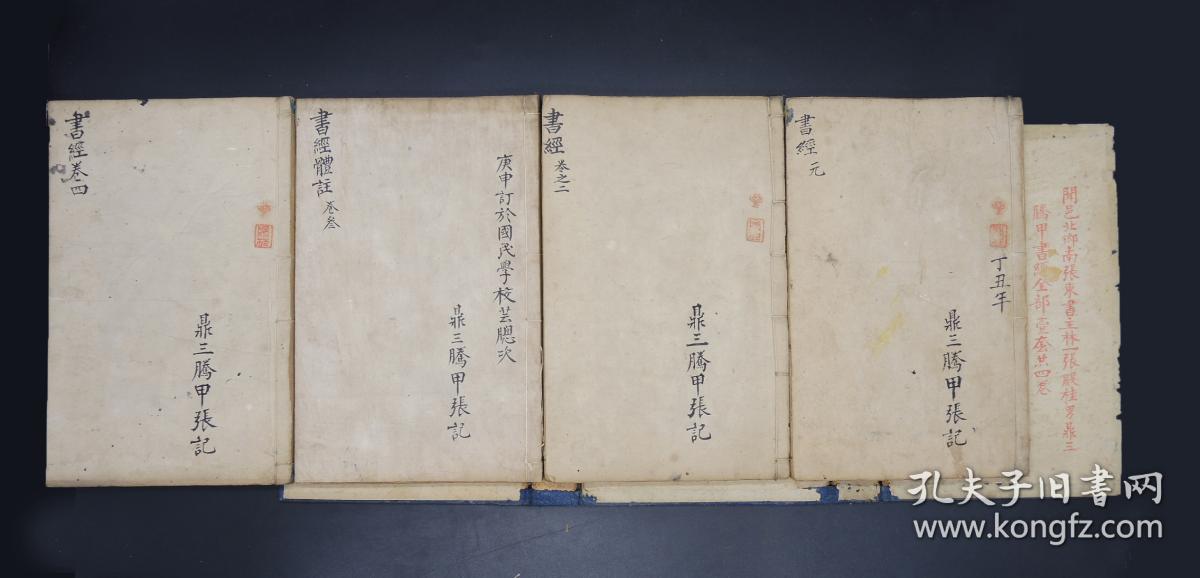 聞邑北鄉南張東書王林一張殿桂男鼎三
騰甲書經全部壹套共四卷
書經 元
丁丑年
鼎三騰甲張記
書經 卷之二
鼎三騰甲張記
書經體註 卷叁
庚申訂於國民學校芸牕次
鼎三騰甲張記
書經卷四
鼎三騰甲張記
孔夫子旧书网
www.kongfz.com